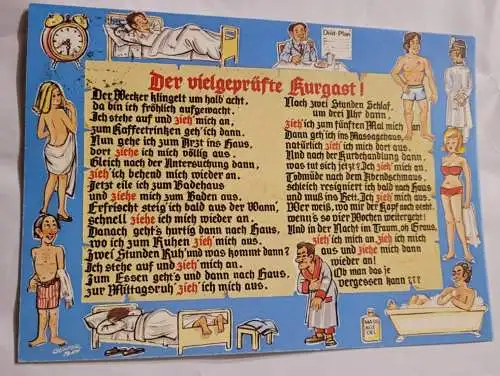 Diät-Plan
Der vielgeprüfte Kurgast!
Der Wecker klingelt um halb acht,
da bin ich fröhlich aufgewacht.
Ich stehe auf und zieh' mich an,
zum Kaffeetrinken geh' ich dann.
Nun gehe ich zum Arzt ins Haus,
dort ziehe ich mich völlig aus.
Gleich nach der Untersuchung dann,
zieh' ich behend mich wieder an.
Jetzt eile ich zum Badehaus
und ziehe mich zum Baden aus.
Erfrischt steig' ich bald aus der Wann',
schnell ziehe ich mich wieder an.
Danach geht's hurtig dann nach Haus,
wo ich zum Ruhen zieh' mich aus.
Zwei Stunden Ruh' und was kommt dann?
Ich stehe auf und zieh' mich an.
Zum Essen geht's und dann nach Haus,
zur Mittagsruh' zieh' ich mich aus.
Nach zwei Stunden Schlaf,
um drei Uhr dann,
zieh' ich zum fünften Mal mich an.
Dann geh ich ins Massagehaus,
natürlich zieh' ich mich dort aus.
Und nach der Kurbehandlung dann,
was tut sich jetzt? Ich zieh' mich an.
Todmüde nach dem Abendschmaus,
schleich resigniert ich bald nach Haus
und muß ins Bett. Ich zieh' mich aus.
Wer weiß, wo mir der Kopf noch steht,
wenn's so vier Wochen weitergeht!
Und in der Nacht im Traum, oh Graus,
zieh' ich mich an, zieh ich mich
aus und ziehe mich dann
wieder an!
Ob man das je
vergessen kann???
MASS
AGE
OEL